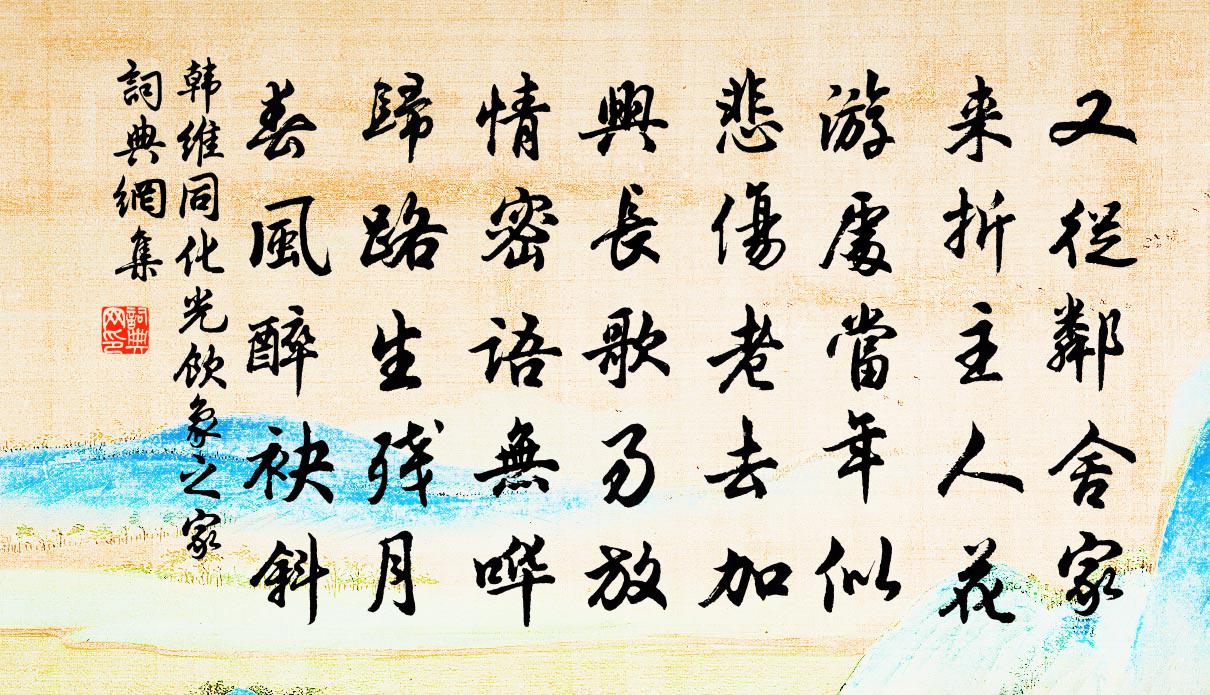 又從鄰舍家
来折主人花
游處當年似
悲傷老去加
興長歌易放
情密語無哗
歸路生残月
春風醉袂斜
韩維同化光飲象之家
詞典網集
詞典网印